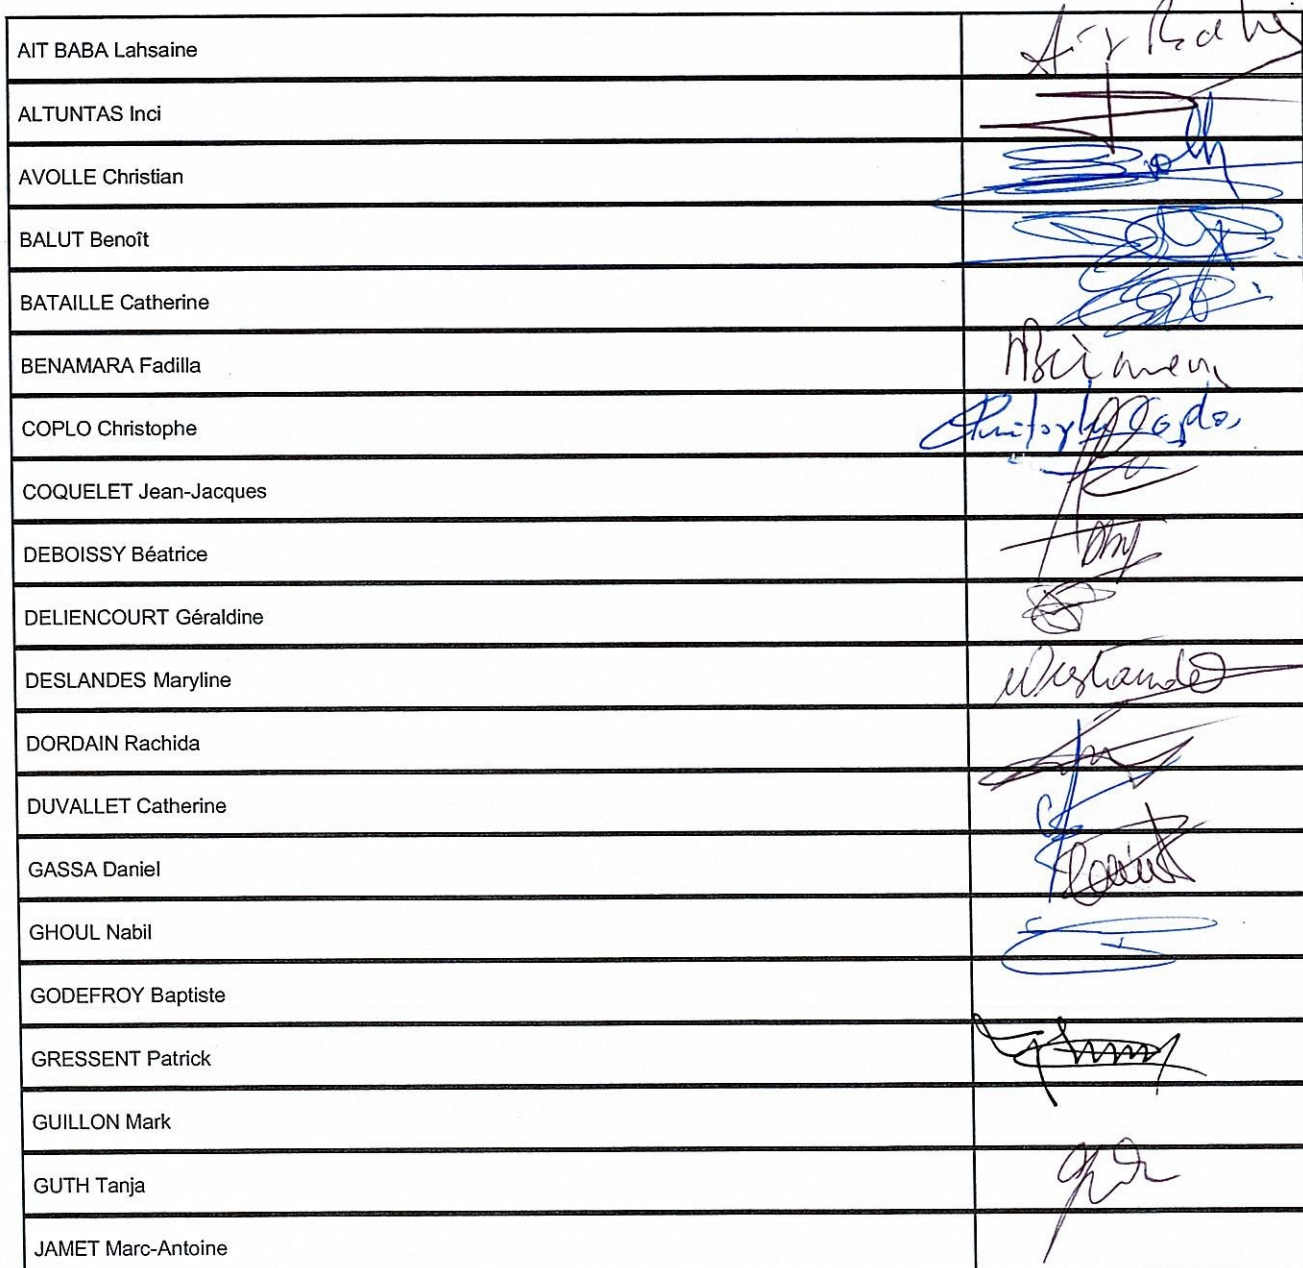 AIT BABA Lahsaine
ALTUNTAS Inci
AVOLLE Christian
BALUT Benoît
BATAILLE Catherine
BENAMARA Fadilla
COPLO Christophe
Christophe Coplo
COQUELET Jean-Jacques
DEBOISSY Béatrice
DELIENCOURT Géraldine
DESLANDES Maryline
DORDAIN Rachida
DUVALLET Catherine
GASSA Daniel
GHOUL Nabil
GODEFROY Baptiste
GRESSENT Patrick
GUILLON Mark
GUTH Tanja
JAMET Marc-Antoine